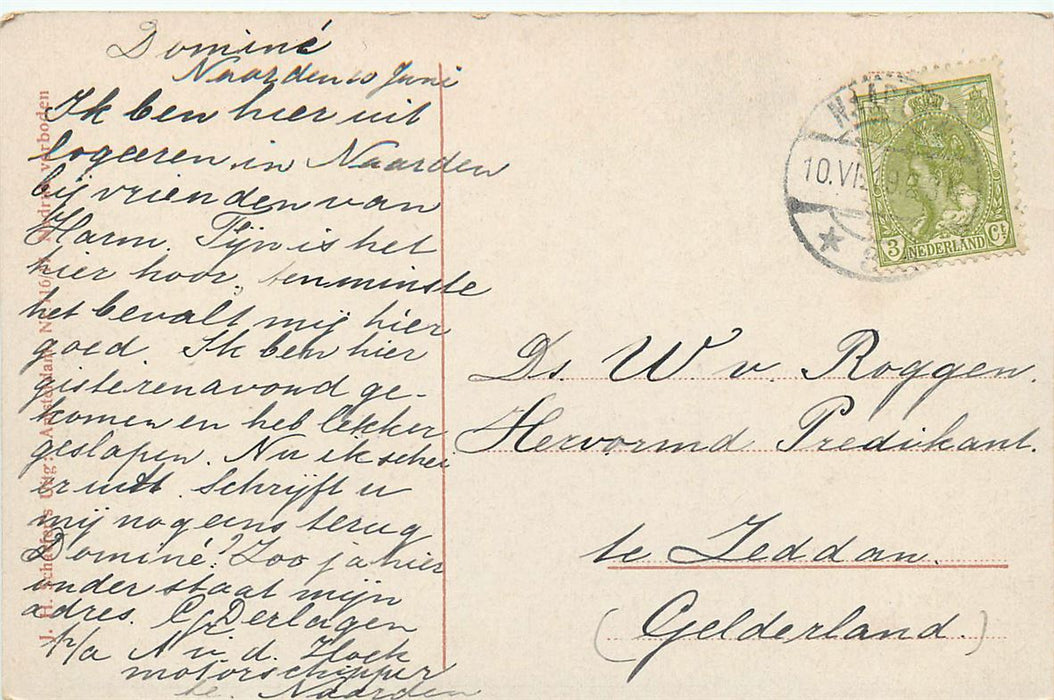 Dominé
Naarden 10 Juni
Ik ben hier uit
logeeren in Naarden
bij vrienden van
Harm. Fijn is het
hier hoor, tenminste
het bevalt mij hier
goed. Ik ben hier
gisterenavond ge-
komen en heb lekker
geslapen. Nu ik schei
er uit. Schrijft u
mij nog eens terug
Dominé? Zoo ja hier
onder staat mijn
adres. G Derlagen
p/a N v. d. Hoek
motorschipper
te Naarden
NAAR
10.VI
3 NEDERLAND Ct
Ds. W. v. Roggen.
Hervormd Predikant.
te Zeddam.
(Gelderland.)
J. H. Schaefer's Uitg. Amsterdam N. Nadruk verboden